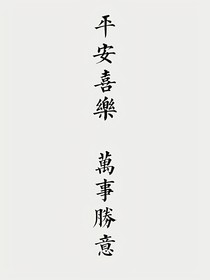 平安喜樂　萬事勝意